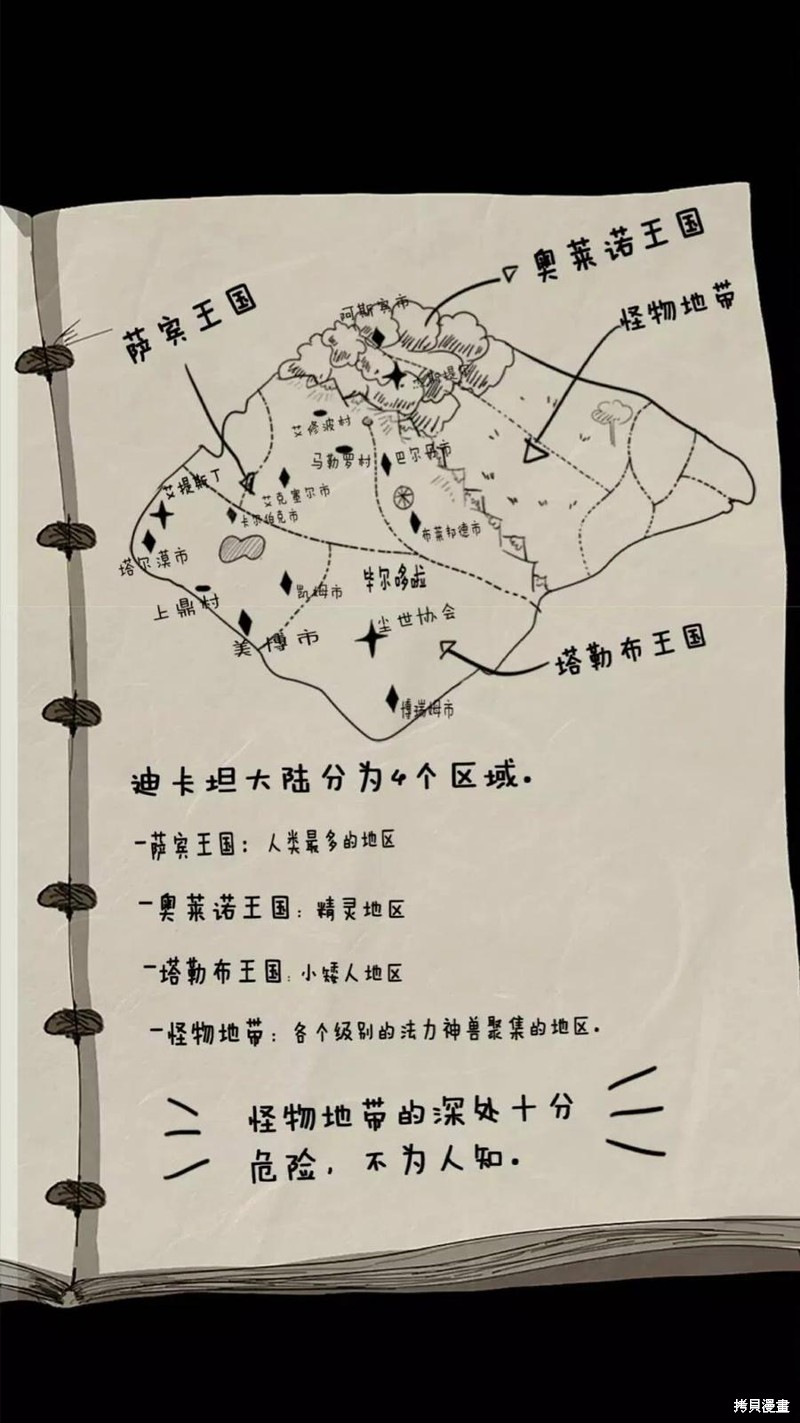 奥莱诺王国
萨宾王国
怪物地带
阿斯宾市
艾修波村
马勒罗村
艾提斯丁
艾克塞尔市
卡尔伯克市
布莱邦德市
塔尔漠市
毕尔哆啦
凯姆市
上鼎村
尘世协会
美博市
塔勒布王国
博瑞姆市
迪卡坦大陆分为4个区域。
-萨宾王国：人类最多的地区
-奥莱诺王国：精灵地区
-塔勒布王国：小矮人地区
-怪物地带：各个级别的法力神兽聚集的地区。
怪物地带的深处十分
危险，不为人知。
拷貝漫畫